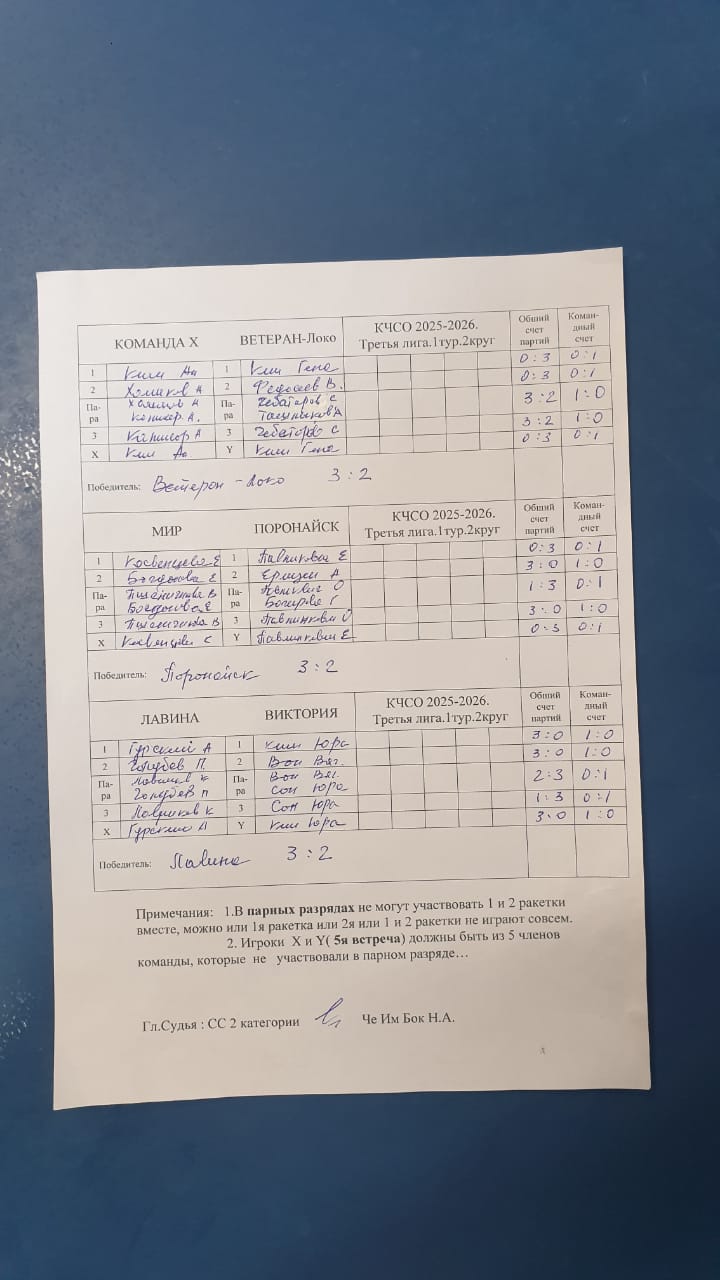 КОМАНДА Х ВЕТЕРАН-Локо КЧСО 2025-2026. Третья лига.1тур.2круг Общий счет партий Коман-дный счет
1 Ким Ар 1 Ким Гена 0:3 0:1
2 Хомяков А 2 Федосеев В. 0:3 0:1
Па-ра Хомяков А Па-ра Чеботарев С 3:2 1:0
А.
3 А 3 С 3:2 1:0
X Ким Ар Y Ким Гена 0:3 0:1
Победитель: Ветерон-Локо 3:2
МИР ПОРОНАЙСК КЧСО 2025-2026. Третья лига.1тур.2круг Общий счет партий Коман-дный счет
1 Косвенцева Е 1 Е 0:3 0:1
2 Богданова Е 2 А 3:0 1:0
Па-ра Пшеничникова В Па-ра О 1:3 0:1
Богданова Е
3 В 3 О 3:0 1:0
X С Y Е 0:3 0:1
Победитель: Поронайск 3:2
ЛАВИНА ВИКТОРИЯ КЧСО 2025-2026. Третья лига.1тур.2круг Общий счет партий Коман-дный счет
1 Гурский А 1 Ким Юра 3:0 1:0
2 Голубев П. 2 Вон Вяг. 3:0 1:0
Па-ра К Па-ра Вон Вяг. 2:3 0:1
Голубев П Сон Юра
3 К 3 Сон Юра 1:3 0:1
X Гурский А Y Ким Юра 3:0 1:0
Победитель: Лавина 3:2
Примечания: 1.В парных разрядах не могут участвовать 1 и 2 ракетки
вместе, можно или 1я ракетка или 2я или 1 и 2 ракетки не играют совсем.
2. Игроки Х и Y( 5я встреча) должны быть из 5 членов
команды, которые не участвовали в парном разряде…
Гл.Судья : СС 2 категории Че Им Бок Н.А.